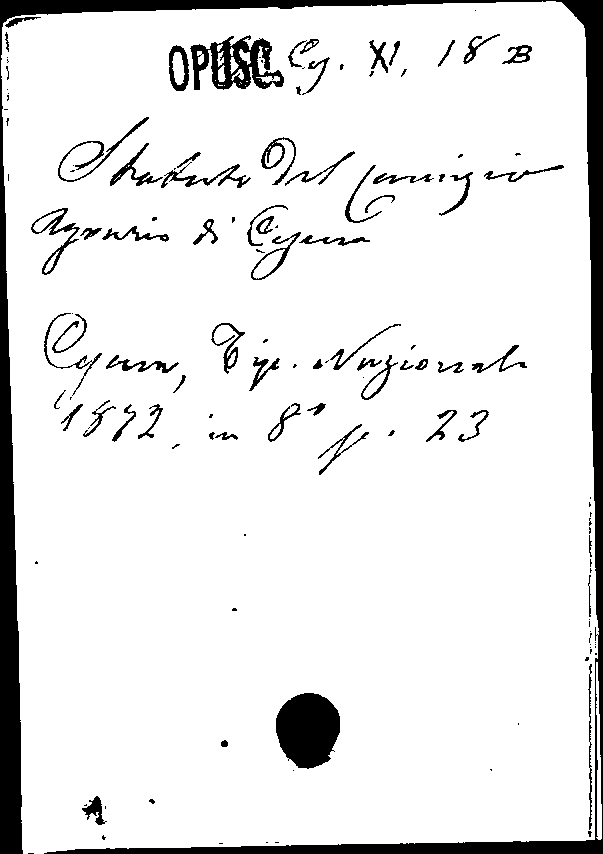 OPUSC. Ces. XI, 18 B
Statuto del Comizio
Agrario di Cesena
Cesena, Tip. Nazionale
1872, in 8° p. 23